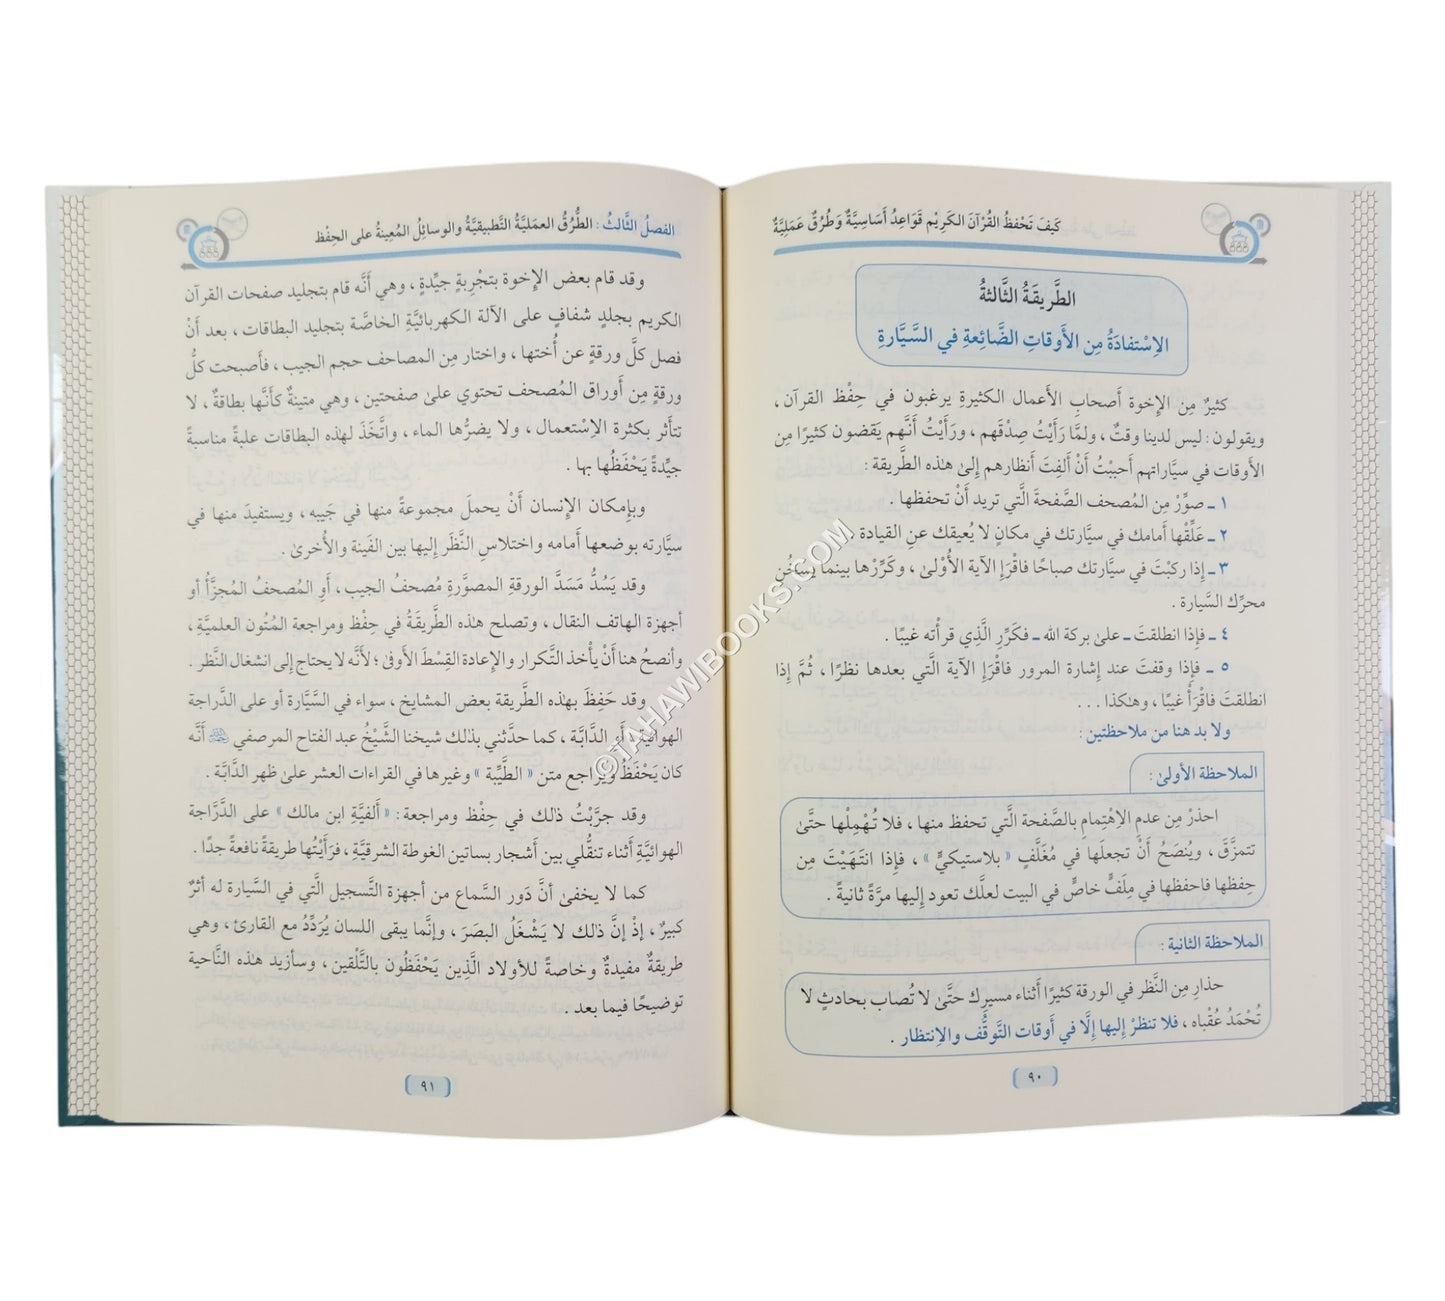 كَيفَ تَحْفظُ القُرْآنَ الكَرِيْم قَوَاعِدُ أَسَاسِيَّةٌ وَطُرُقٌ عَمَلِيَّةٌ
الطَّرِيقَةُ الثَّالثةُ
الاِسْتفادَةُ مِن الأَوقاتِ الضَّائِعةِ في السَّيَّارةِ
كثيرٌ مِن الإِخوة أَصحابِ الأَعمال الكثيرةِ يرغبون في حِفْظ القرآن ،
ويقولون : ليس لدينا وقتٌ ، ولمَّا رَأَيْتُ صِدْقَهم ، ورَأَيْتُ أَنَّهم يَقضون كثيرًا مِن
الأَوقات في سيَّاراتهم أَحببْتُ أَنْ أَلفِتَ أَنظارهم إِلىٰ هٰذه الطَّريقة :
١ ـ صوِّرْ مِن المُصحف الصَّفحةَ الَّتي تريد أَنْ تحفظها .
٢ ـ علِّقْها أَمامك في سيَّارتك في مكانٍ لا يُعيقك عنِ القيادة .
٣ ـ إِذا ركبْتَ في سيَّارتك صباحًا فاقْرَإِ الآية الأُوْلىٰ ، وكَرِّرْها بينما يسخُن
محرِّك السَّيارة .
٤ ـ فإِذا انطلقتَ ـ علىٰ بركة الله ـ فكَرِّرِ الَّذي قرأْته غيبًا .
٥ ـ فإِذا وقفتَ عند إِشارة المرور فاقْرَإِ الآية الَّتي بعدها نظرًا ، ثُمَّ إِذا
انطلقتَ فاقْرَأْ غيبًا ، وهٰكذا . . .
ولا بد هنا من ملاحظتين :
الملاحظة الأُولىٰ :
احذرْ مِن عدمِ الاِهْتِمامِ بالصَّفحة الَّتي تحفظ منها ، فلا تُهْمِلْها حتَّىٰ
تتمزَّق ، ويُنصَحُ أَنْ تجعلَها في مُغَلَّفٍ « بلاستيكيٍّ » ، فإِذا انتَهَيْتَ مِن
حِفظها فاحفظها في مِلَفٍّ خاصٍّ في البيت لعلَّك تعود إِليها مرَّةً ثانيةً .
الملاحظة الثانية :
حذارِ مِن النَّظر في الورقة كثيرًا أَثناء مسيرك حتَّىٰ لا تُصاب بحادثٍ لا
تُحْمَدُ عُقْباه ، فلا تنظرْ إِليها إِلَّا في أَوقات التَّوقُّف والاِنتظار .
٩٠
الفصلُ الثَّالثُ : الطُّرُقُ العمَليَّةُ التَّطبيقيَّةُ والوسائِلُ المُعِينةُ على الحِفْظ
وقد قام بعض الإِخوة بتجْرِبةٍ جيِّدةٍ ، وهي أَنَّه قام بتجليد صفحات القرآن
الكريم بجلدٍ شفافٍ على الآلة الكهربائيَّةِ الخاصَّة بتجليد البطاقات ، بعد أَنْ
فصل كلَّ ورقةٍ عن أُختها ، واختار مِن المصاحف حجم الجيب ، فأَصبحت كلُّ
ورقةٍ مِن أَوراق المُصحف تحتوي علىٰ صفحتين ، وهي متينةٌ كأَنَّها بطاقةٌ ، لا
تتأَثر بكثرة الاِستعمال ، ولا يضرُّها الماء ، واتَّخَذَ لهٰذه البطاقات علبةً مناسبةً
جيِّدةً يَحْفَظُها بها .
وبإِمكان الإِنسان أَنْ يحملَ مجموعةً منها في جَيبه ، ويستفيدَ منها في
سيَّارته بوضعها أَمامه واختلاسِ النَّظَر إِليها بين الفَينة والأُخرىٰ .
وقد يَسُدُّ مَسَدَّ الورقةِ المصوَّرةِ مُصحفُ الجيب ، أَوِ المُصحفُ المُجزَّأُ أَو
أَجهزة الهاتف النقال ، وتصلح هٰذه الطَّريقةُ في حِفْظ ومراجعة المُتون العلميَّةِ ،
وأَنصحُ هنا أَنْ يأْخذ التَّكرار والإِعادة القِسْطَ الأَوفىٰ ؛ لأَنَّه لا يحتاج إِلى انشغال النَّظر .
وقد حَفِظَ بهٰذه الطَّريقة بعض المشايخ ، سواء في السَّيَّارة أَو على الدَّراجة
الهوائية أَو الدَّابَّة ، كما حدَّثني بذٰلك شيخنا الشَّيْخُ عبد الفتاح المرصفي أَنَّه
كان يَحْفَظُ ويُراجع متن « الطَّيِّبة » وغيرها في القراءات العشر علىٰ ظهر الدَّابَّة .
وقد جرَّبْتُ ذلك في حِفْظ ومراجعة : « أَلفيَّةِ ابن مالك » على الدَّرَّاجة
الهوائيَّةِ أَثناء تنقُّلي بين أَشجار بساتين الغوطة الشرقيَّةِ ، فرَأَيْتُها طريقةً نافعةً جدًا .
كما لا يخفىٰ أَنَّ دَور السَّماع من أَجهزة التَّسجيل الَّتي في السَّيارة له أَثرٌ
كبيرٌ ، إِذْ إِنَّ ذلك لا يَشْغَلُ البصَرَ ، وإِنَّما يبقى اللسان يُرَدِّدُ مع القارئ ، وهي
طريقةٌ مفيدةٌ وخاصةً للأَولاد الَّذِين يَحْفَظُون بالتَّلْقين ، وسأَزيد هٰذه النَّاحية
توضيحًا فيما بعد .
٩١
©TAHAWIBOOKS.COM